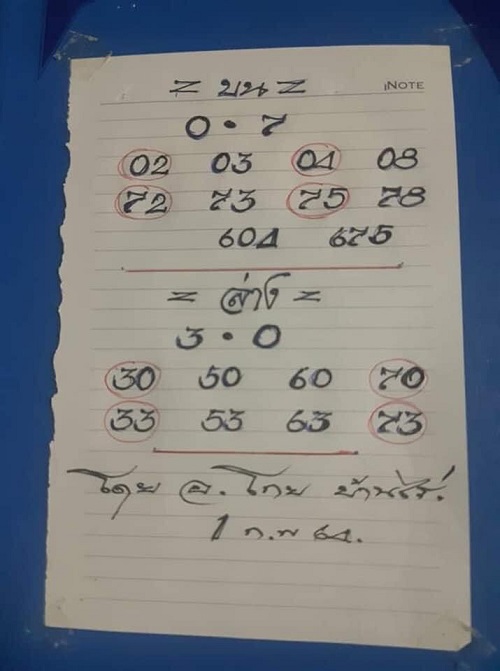 = บน = iNOTE
0 • 7
02 03 04 08
72 73 75 78
604 675
= ล่าง =
3 • 0
30 50 60 70
33 53 63 73
โดย อ. โกย บ้านไร่.
1 ก.พ 64.